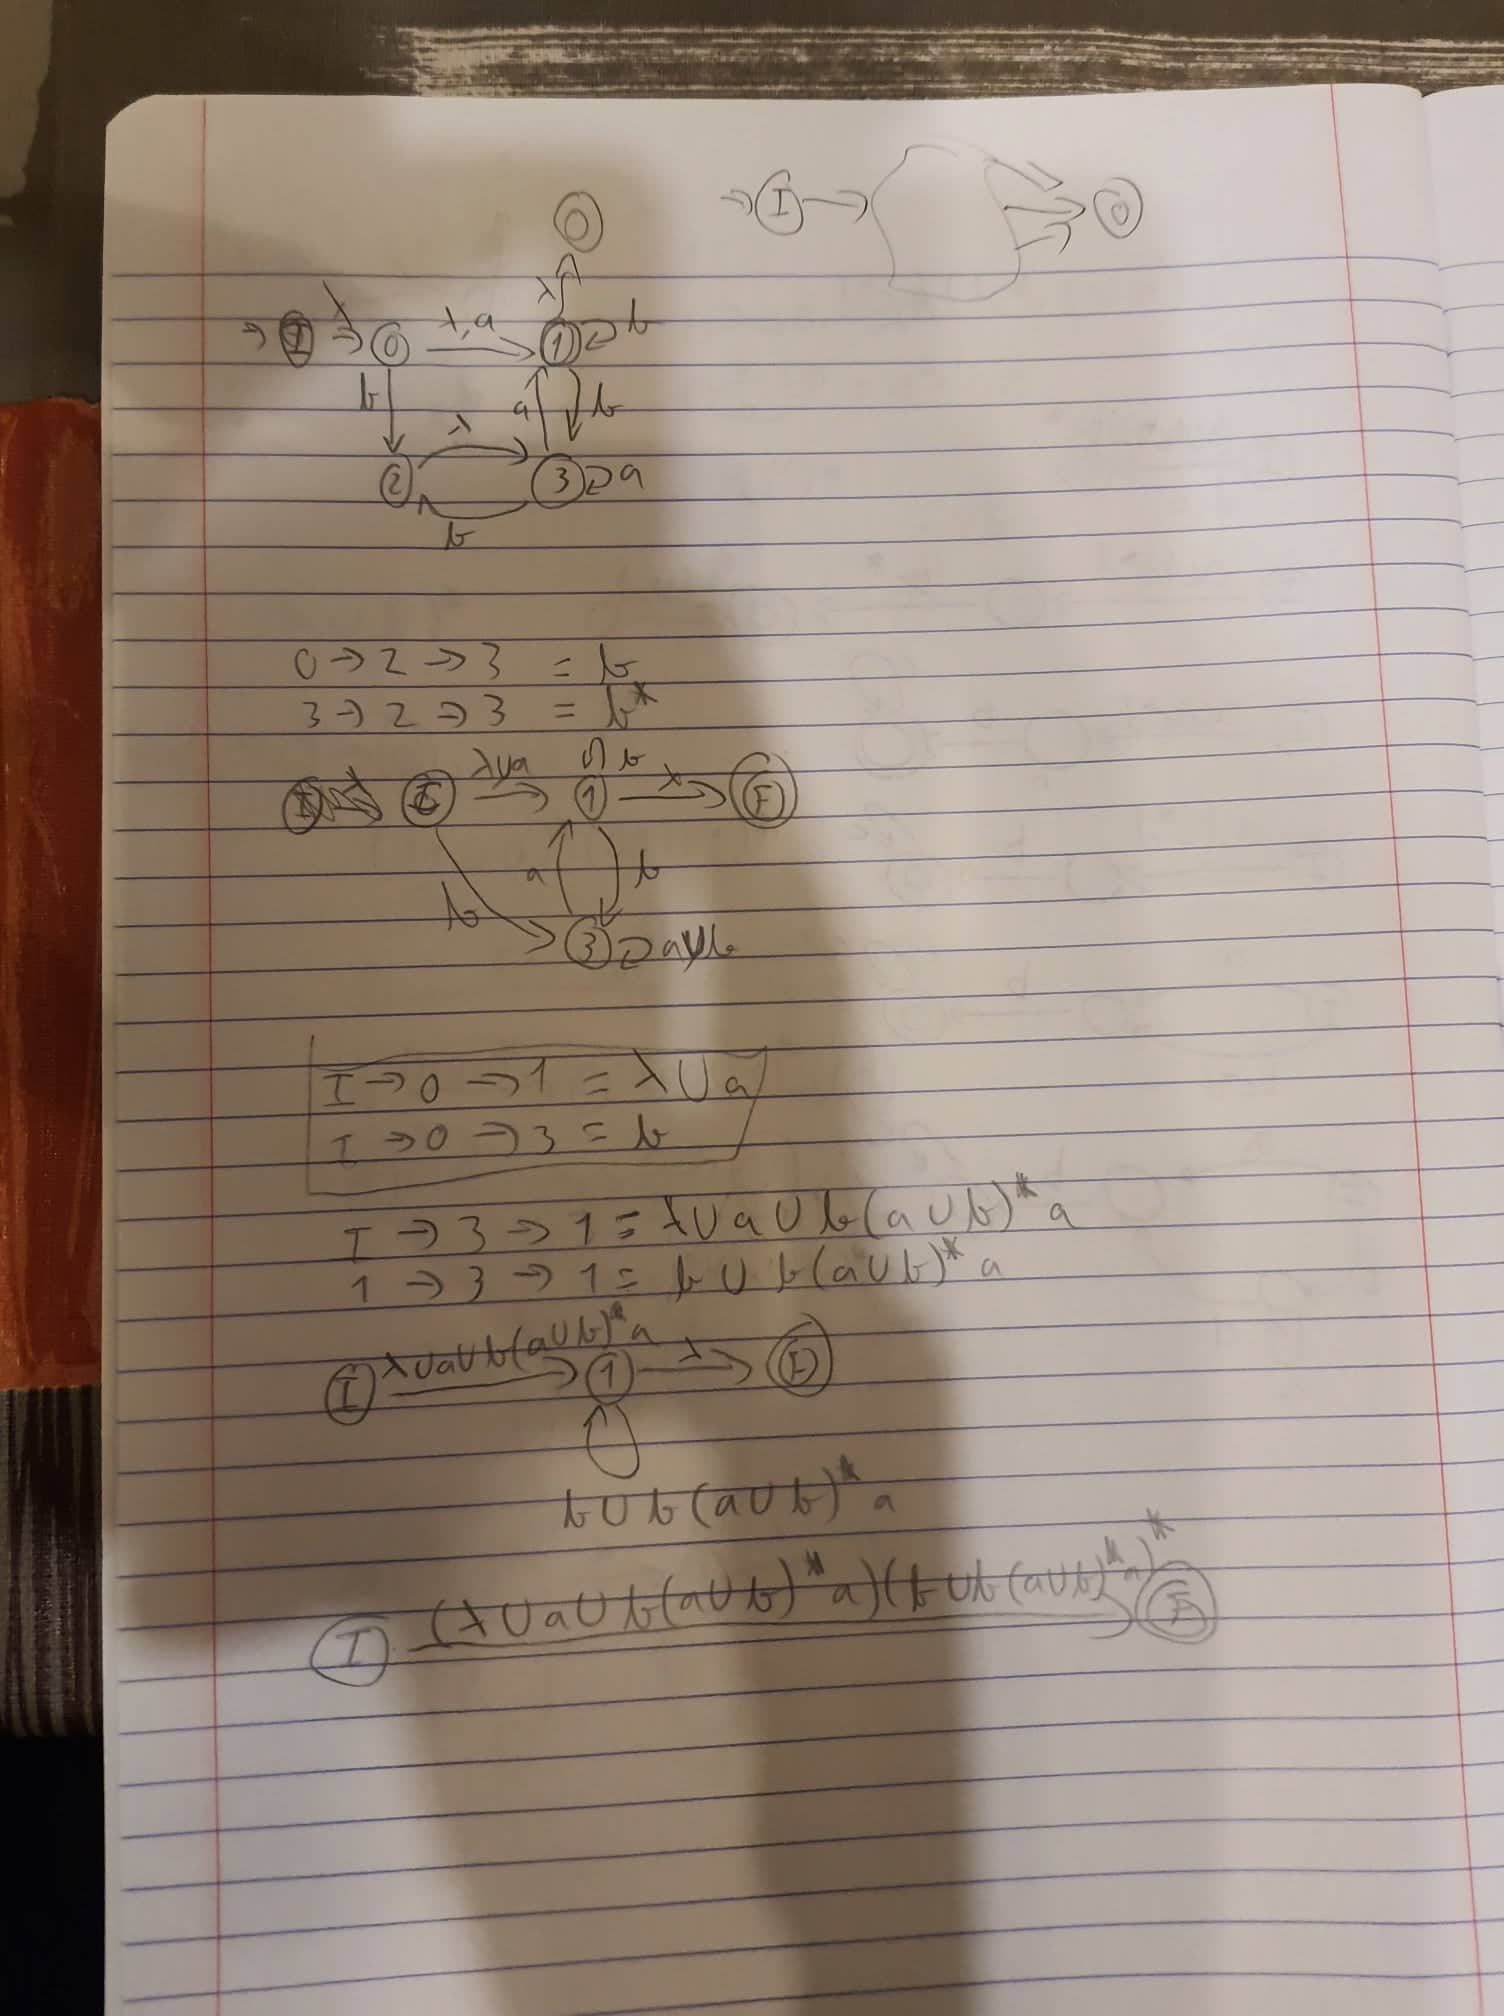 → I → O
O
λ
→ I λ → 0 λ,a → 1 b
b a b
λ
2 3 a
b
0 → 2 → 3 = b
3 → 2 → 3 = b*
λ∪a b
→ 1 λ → F
a b
b
3 a∪b
I → 0 → 1 = λ ∪ a
I → 0 → 3 = b
I → 3 → 1 = λ ∪ a ∪ b(a ∪ b)* a
1 → 3 → 1 = b ∪ b(a∪b)* a
λ∪a∪b(a∪b)*a λ
I → 1 → F
b ∪ b (a ∪ b)* a
(λ ∪ a ∪ b(a∪b)* a)(b ∪b (a∪b)* a)*
I → F